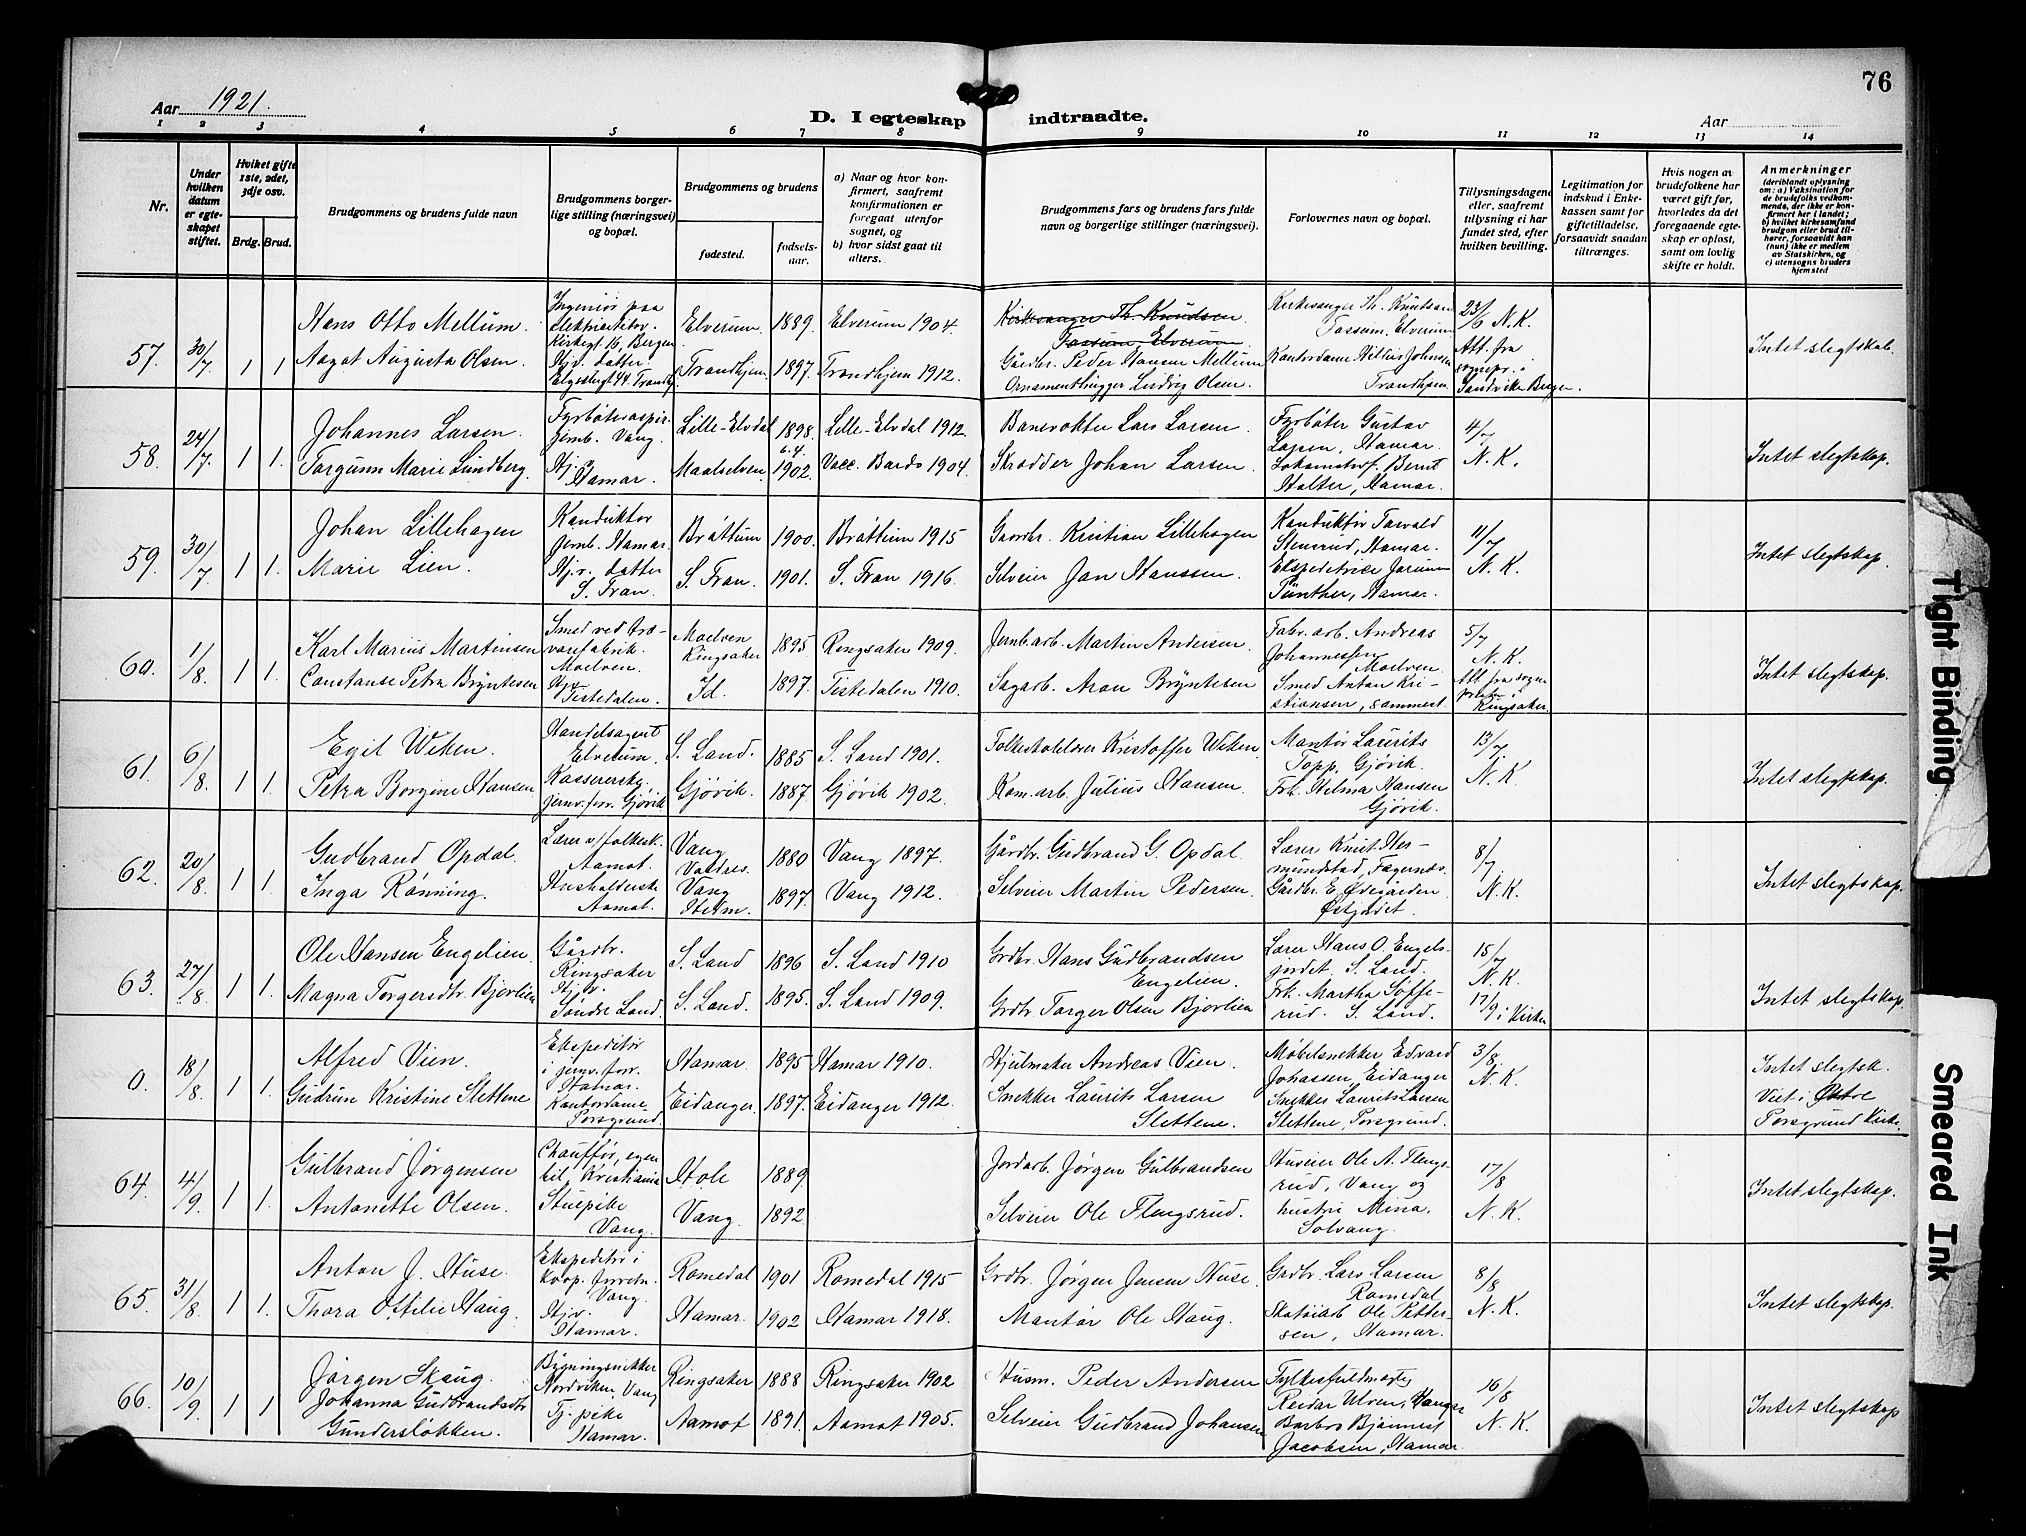 76
Aar 1921.
D. I egteskap indtraadte.
Aar
1 2 3 4 5 6 7 8 9 10 11 12 13 14
Nr.
Under hvilken datum er egteskapet stiftet.
Hvilket gifte 1ste, 2det, 3dje osv.
Brdg. Brud.
Brudgommens og brudens fulde navn
Brudgommens borgerlige stilling (næringsvei) og bopæl.
Brudgommens og brudens
fødested.
fødselsaar.
a) Naar og hvor konfirmert, saafremt konfirmationen er foregaat utenfor sognet, og
b) hvor sidst gaat til alters.
Brudgommens fars og brudens fars fulde navn og borgerlige stillinger (næringsvei).
Forlovernes navn og bopæl.
Tillysningsdagene eller, saafremt tillysning ei har fundet sted, efter hvilken bevilling.
Legitimation for indskud i Enkekassen samt for giftetilladelse, forsaavidt saadan tiltrænges.
Hvis nogen av brudefolkene har været gift før, hvorledes da det foregaaende egteskap er opløst, samt om lovlig skifte er holdt.
Anmerkninger
(deriblandt oplysning om: a) Vaksination for de brudefolks vedkommende, der ikke er konfirmert her i landet; b) hvilket kirkesamfund brudgom eller brud tilhører, forsaavidt han (hun) ikke er medlem av Statskirken, og c) utensogns bruders hjemsted
57. 30/7 1 1
Hans Otto Mellum.
Aagot Augusta Olsen.
Ingeniør paa
Kirkegt. 16, Bergen
Hjv. datter
Elverum 1889. Elverum 1904.
Trondhjem. 1897. Trondhjem 1912.
Kirkesanger Th. Knudsen
Fossum, Elverum
Gårdbr. Peder Hansen Mellum
Ornamenthugger Ludvig Olsen.
Kirkesanger Th. Knudsen
Fossum, Elverum
Kontordame
Trondhjem.
23/6 N. K.
Att. fra
sognepr. i
Sandviken Bergen.
Intet slegtskab.
58. 24/7 1 1.
Johannes Larsen.
Torgunn Marie Lundberg.
Fyrbøteraspir.
Jernb. Vang.
Hj. v.
Hamar.
Lille-Elvdal 1898. Lille-Elvdal 1912.
Maalselven 6.4. 1902. Vacc. Bardo 1904.
Banevokter Lars Larsen.
Skrædder Johan Larsen.
Fyrbøter Gustav
Larsen, Hamar.
Lokomotivf. Bernt
Holter, Hamar.
4/7
N. K.
Intet slegtskap.
59. 30/7 1 1.
Johan Lillehagen
Marie Lien.
Konduktør
Jernb. Hamar.
Hjv. datter
S. Fron.
Brøttum 1900. Brøttum 1915
S. Fron. 1901. S. Fron 1916.
Gaardbr. Kristian Lillehagen
Selveier Jon Hanssen.
Konduktør Torvald
Stensrud, Hamar.
Ekspeditrice
Günther, Hamar.
11/7
N. K.
Intet slegtskap.
60. 1/8. 1 1.
Karl Marius Martinsen
Constanse Petra Bryntesen
Smed ved træ-
varefabrik.
Moelven.
Hjv.
Tistedalen.
Moelven
Ringsaker 1895. Ringsaker 1909.
Id. 1897. Tistedalen 1910.
Jernb.arb. Martin Andersen.
Sagarb. Aron Bryntesen
Fabr. arb. Andreas
Johannessen
Moelven.
Smed Anton Kri-
stiansen, sammest.
5/7
N. K.
Att. fra sogne
presten i
Ringsaker.
Intet slegtskap.
61. 6/8. 1 1.
Egil Weken.
Petra Borgine Hansen
Handelsagent
Elverum.
Kassererske
jernv.forr. Gjøvik
S. Land. 1885 S. Land 1901.
Gjøvik. 1887. Gjøvik 1902.
Folkeskolelærer Kristoffer Weken
Kom. arb. Julius Hansen.
Montør Laurits
Topp, Gjøvik.
Frk. Helma Hansen
Gjøvik.
13/7.
N. K.
Intet slegtskap.
62. 20/8. 1 1.
Gudbrand Opdal.
Inga Rønning.
Lærer v/ folkesk.
Aamot.
Husholderske
Aamot.
Vang
Valdres. 1880 Vang 1897.
Vang
Hedm. 1897. Vang 1912.
Gårdbr. Gudbrand G. Opdal.
Selveier Martin Pedersen.
Lærer Knut Her-
mundstad, Fagernes.
Gårdbr. E. Ødegården
8/7.
N. K.
Intet slegtskap.
63. 27/8. 1 1.
Ole Hansen Engelien.
Magna Torgersdtr. Bjørlien
Gårdbr.
Ringsaker
Hjv.
Søndre Land.
S. Land 1896 S. Land 1910
S. Land. 1895. S. Land 1909.
Grdbr. Hans Gudbrandsen
Engelien.
Grdbr Torger Olsen Bjørlien
Lærer Hans O. Engels-
jordet. S. Land.
Frk. Martha Søffe-
rud. S. Land.
15/7
N. K.
17/9 i Kirken
Intet slegtskap.
0. 18/8. 1 1.
Alfred Vien.
Gudrun Kristine Slettene
Ekspeditør
i jernv. forr.
Hamar.
Kontordame
Porsgrund.
Hamar 1895 Hamar 1910.
Eidanger. 1897. Eidanger 1912.
Hjulmaker Andreas Vien.
Snekker Laurits Larsen
Slettene.
Møbelsnekker Edvard
Johassen, Eidanger
Snekker Laurits Larsen
Slettene, Porsgrund.
3/8.
N. K.
Intet slegtsk.
Viet i Østre
Porsgrund Kirke.
64. 4/9. 1 1.
Gulbrand Jørgensen
Antonette Olsen.
Chauffør, egen
bil, Kristiania
Stuepike
Vang.
Hole 1889.
Vang. 1892
Jordarb. Jørgen Gulbrandsen
Selveier Ole Flengsrud.
Husveier Ole A. Flengs-
rud, Vang og
hustru Mina,
Solvang.
17/8
N. K.
Intet slegtskap.
65. 31/8. 1 1.
Anton J. Huse.
Thora Ottilie Haug.
Ekspeditør i
koop. forretn.
Vang.
Hjv.
Hamar.
Romedal 1901 Romedal 1915
Hamar. 1902 Hamar 1918.
Grdbr. Jørgen Jensen Huse.
Montør Ole Haug.
Grdbr. Lars Larsen
Romedal
Skotøiarb Ole Petter-
sen, Hamar.
8/8
N. K.
Intet slegtskap.
66. 10/9. 1 1
Jørgen Skaug.
Johanna Gudbrandsdtr
Gundersløkken.
Bygningssnekker
Nordviken, Vang
Tj. pike
Hamar.
Ringsaker 1888 Ringsaker 1902
Aamot 1891. Aamot 1905.
Husm. Peder Andersen
Selveier Gudbrand Johansen
Fylkesfuldmægtig
Reidar Ulven, Hamar
Barbro Bjønnes
Jacobsen, Hamar.
16/8
N. K.
Intet slegtskap
Tight Binding
Smeared Ink